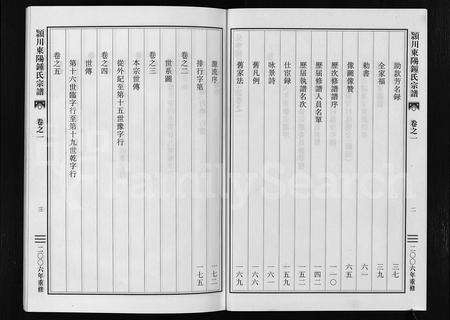 潁川東陽鍾氏宗譜
卷之一
二
二〇〇六年重修
助款芳名錄 三七
全家福 三九
勅書 六一
像圖像贊 六五
歷次修譜序 一一〇
歷屆修譜人員名單 一四二
歷屆執譜名次 一五二
仕宦錄 一五九
咏景詩 一六六
舊凡例 一六六
舊家法 一六九
源流序 一七二
排行字第 一七五
卷之二
世系圖
卷之三
本宗世傳
卷之四
世傳
從外紀至第十五世豫字行
第十六世臨字行至第十九世乾字行
卷之五
潁川東陽鍾氏宗譜
卷之一
三
二〇〇六年重修
FamilySearch